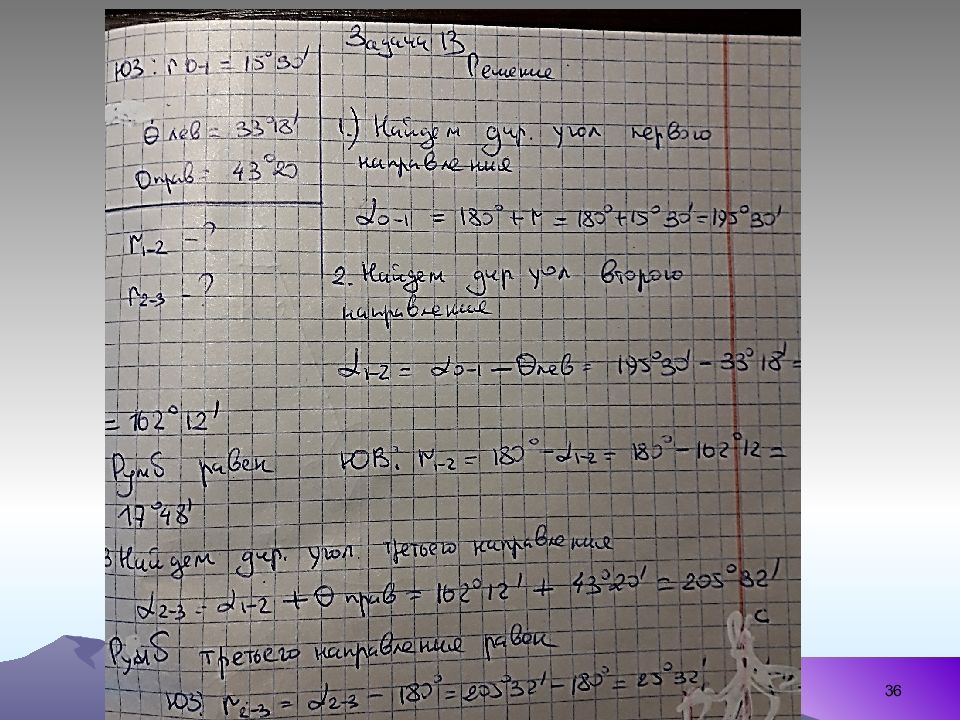 Задача 13
ЮЗ: r 0-1 = 15°30'
Решение
θ лев = 33°18'
θ прав = 43°20
r1-2 - ?
r2-3 - ?
1.) Найдем дир. угол первого
направления
α0-1 = 180° + r = 180° + 15°30' = 195°30'
2. Найдем дир угол второго
направления
α1-2 = α0-1 - θлев = 195°30' - 33°18' =
= 162°12'
Румб равен ЮВ: r1-2 = 180° - α1-2 = 180° - 162°12 =
17°48'
3 Найдем дир. угол. третьего направления
α2-3 = α1-2 + θ прав = 162°12' + 43°20' = 205°32'
Румб третьего направления равен
ЮЗ: r2-3 = α2-3 - 180° = 205°32' - 180° = 25°32'
С
36